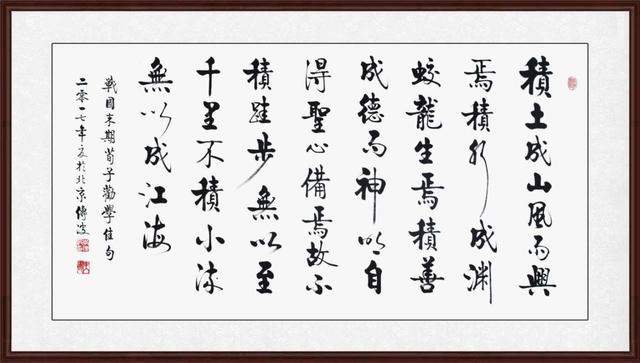 積土成山風雨興
焉積水成淵
蛟龍生焉積善
成德而神明自
得聖心備焉故不
積跬步無以至
千里不積小流
無以成江海
戰國末期荀子勸學佳句
二零一七年夏於北京